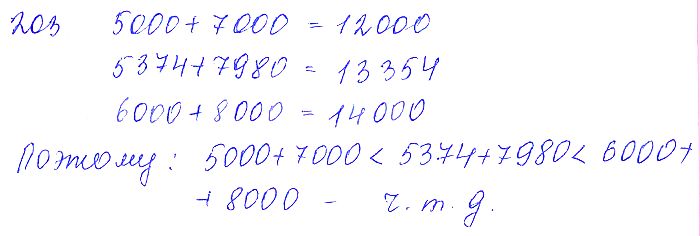 203 5000 + 7000 = 12000
5374 + 7980 = 13354
6000 + 8000 = 14000
Поэтому: 5000 + 7000 < 5374 + 7980 < 6000 +
+ 8000 - ч. т. д.